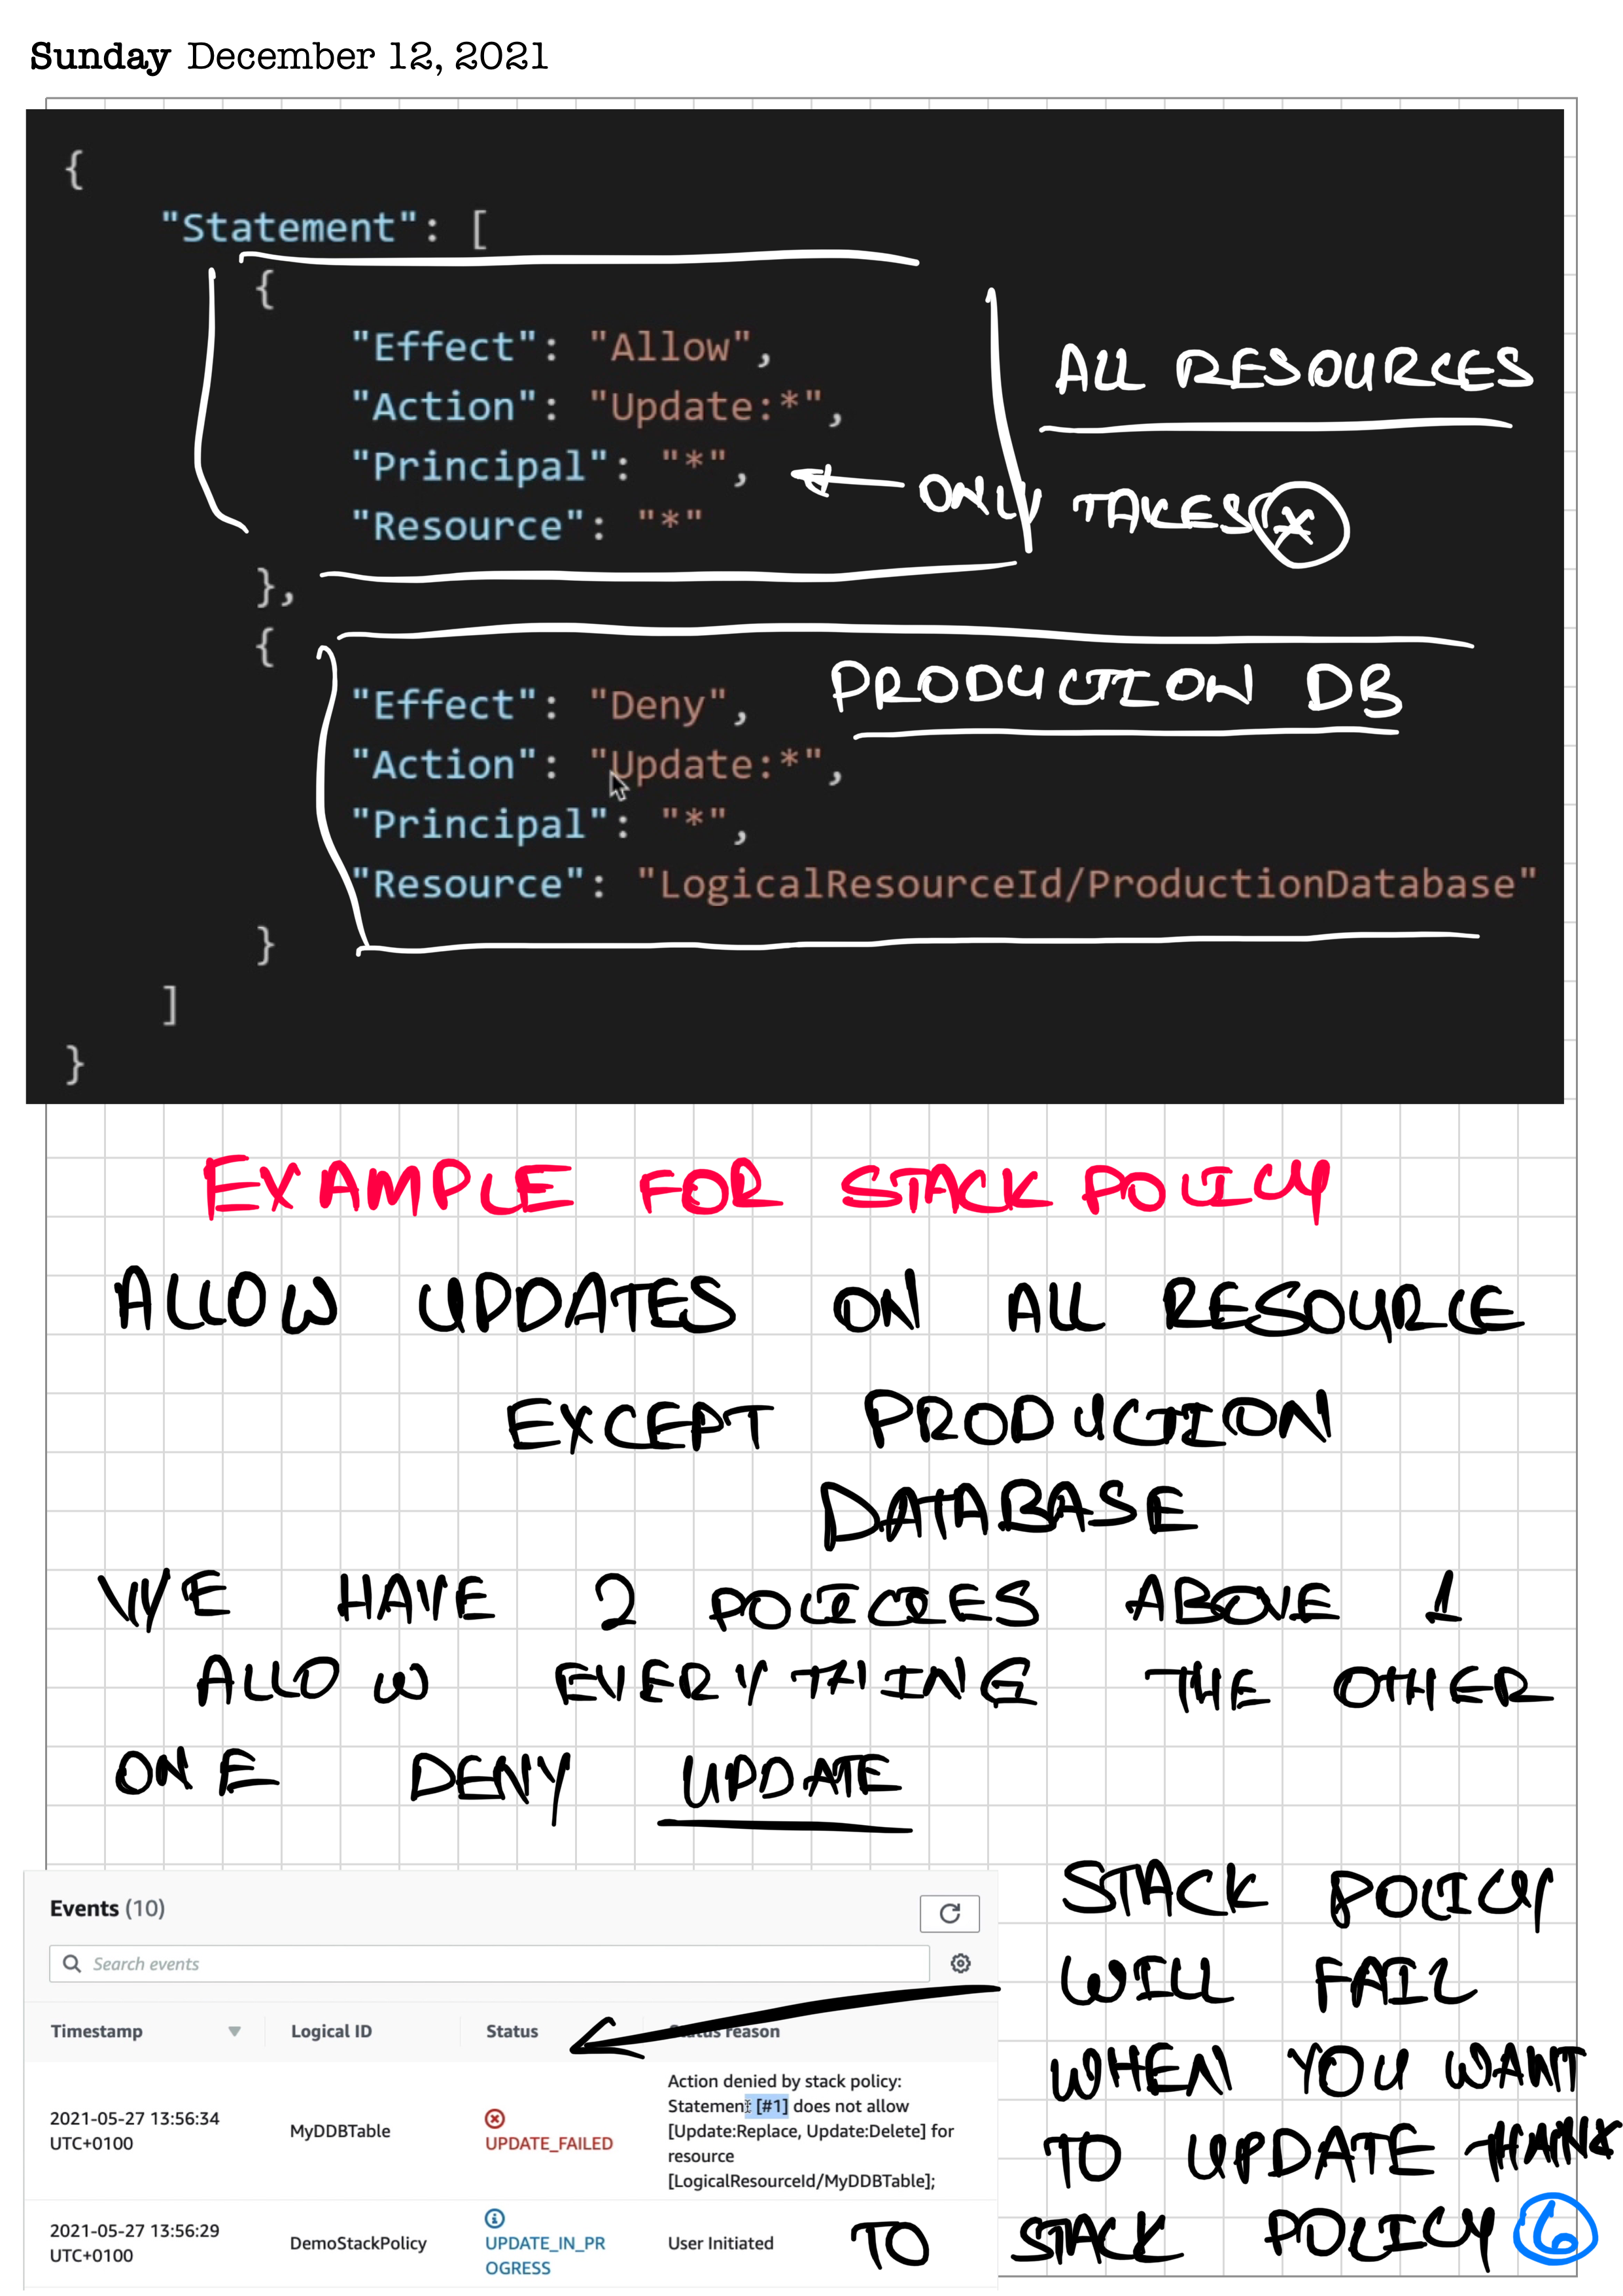 Sunday December 12, 2021
{
"Statement": [
{
"Effect": "Allow",
"Action": "Update:*",
"Principal": "*",
"Resource": "*"
},
ALL RESOURCES
ONLY TAKES *
{
"Effect": "Deny",
"Action": "Update:*",
"Principal": "*",
"Resource": "LogicalResourceId/ProductionDatabase"
}
]
}
PRODUCTION DB
EXAMPLE FOR STACK POLICY
ALLOW UPDATES ON ALL RESOURCE
EXCEPT PRODUCTION
DATABASE
WE HAVE 2 POLICIES ABOVE 1
ALLOW EVERYTHING THE OTHER
ONE DENY UPDATE
Events (10)
Search events
Timestamp Logical ID Status Status reason
2021-05-27 13:56:34
UTC+0100
MyDDBTable
UPDATE_FAILED
Action denied by stack policy:
Statement [#1] does not allow
[Update:Replace, Update:Delete] for
resource
[LogicalResourceId/MyDDBTable];
2021-05-27 13:56:29
UTC+0100
DemoStackPolicy
UPDATE_IN_PR
OGRESS
User Initiated
STACK POLICY
WILL FAIL
WHEN YOU WANT
TO UPDATE THANX
TO STACK POLICY
6